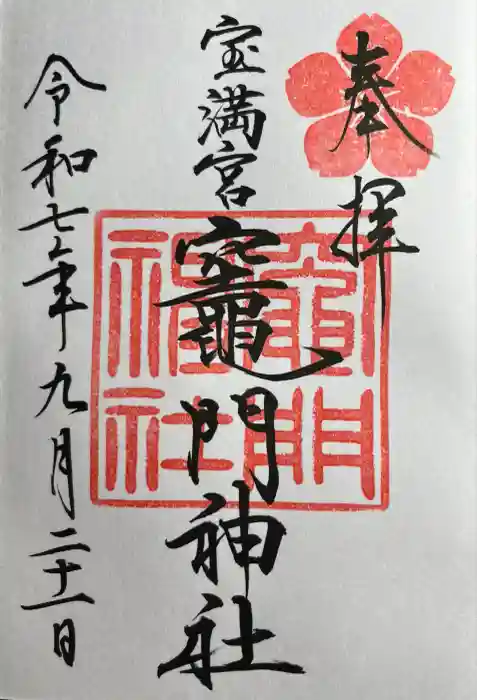 奉拝
宝満宮
竈門神社
令和七年九月二十一日
竈門
神社